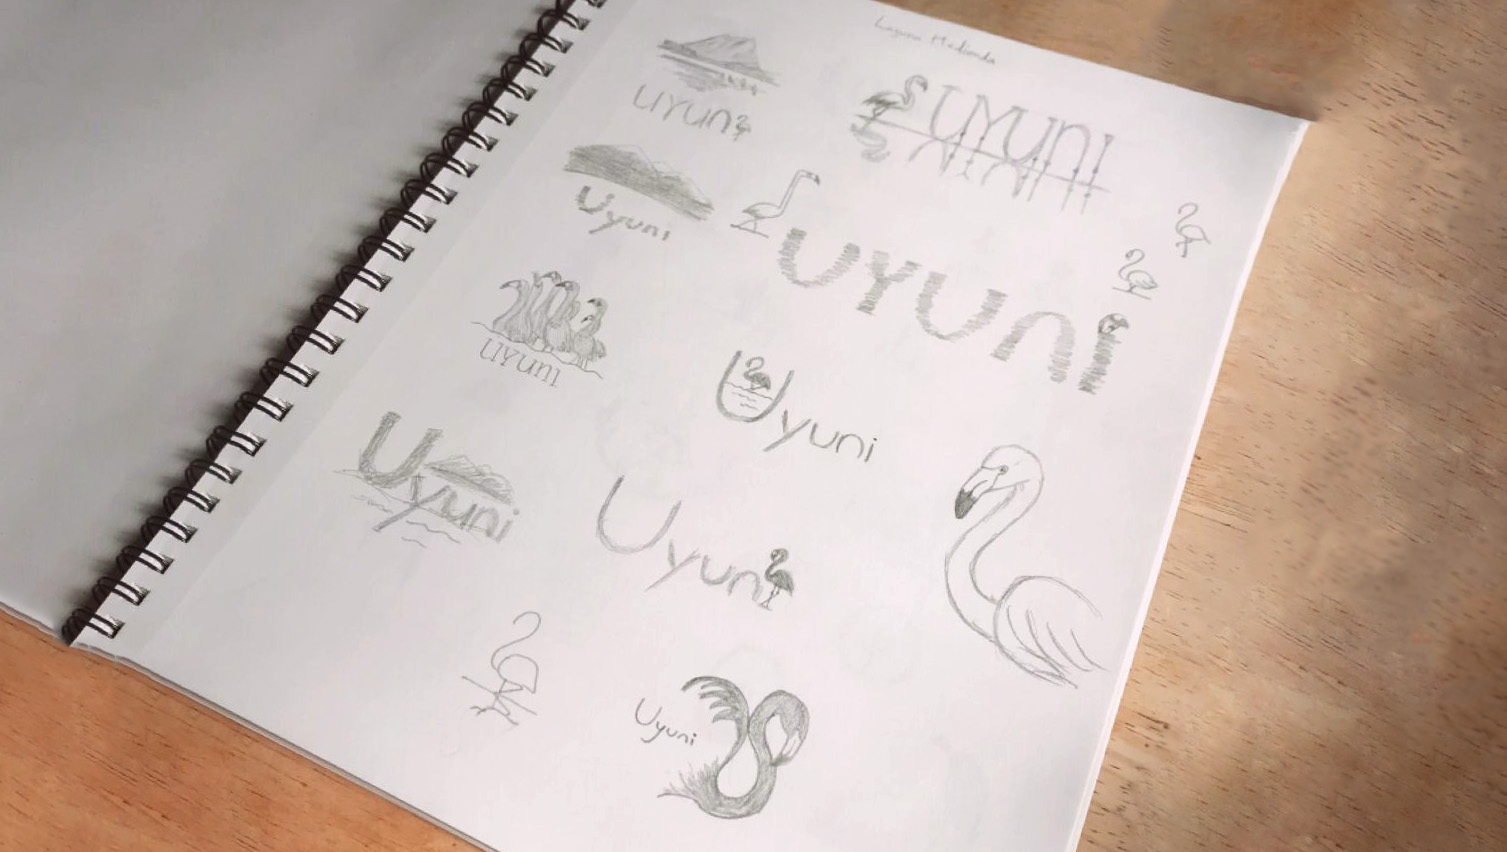 Laguna Hedionda
UYUNI
UYUNI
Uyuni
UYUNI
UYUNI
Uyuni
Uyuni
Uyuni
Uyuni